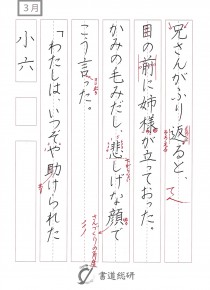 3月
兄さんがふり返ると、
目の前に姉様が立っておった。
かみの毛みだし、悲しげな顔で
こう言った。
「わたしは、いつぞや助けられた
小六
書道総研